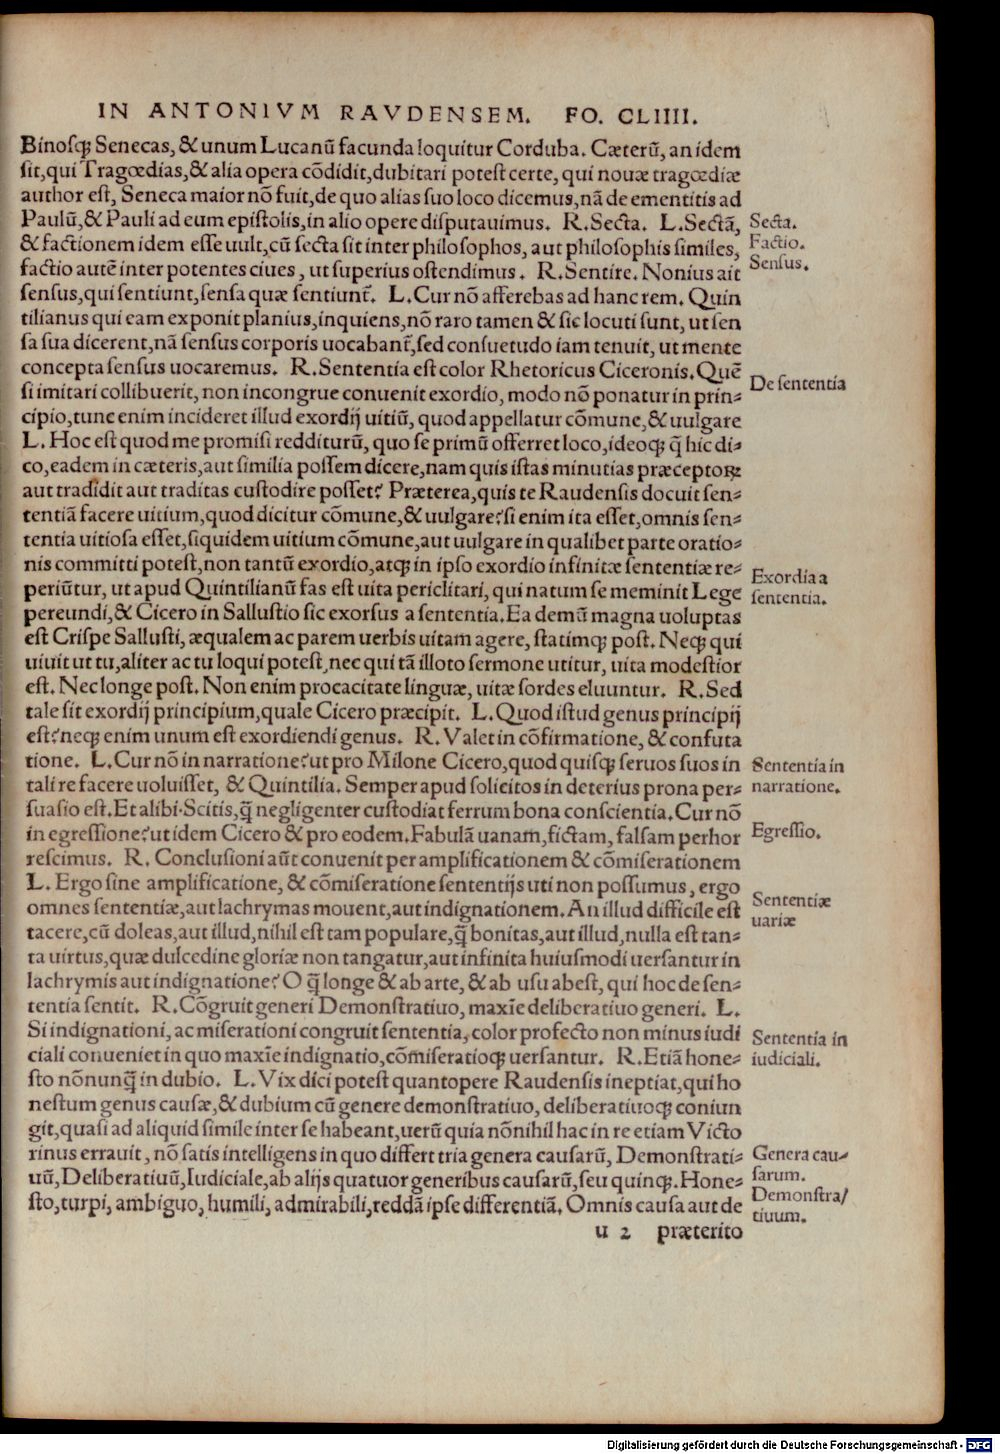 IN ANTONIVM RAVDENSEM. FO. CLIIII.
Binosq; Senecas, & unum Lucanū facunda loquitur Corduba. Cæterū, an idem
sit, qui Tragœdias, & alia opera cōdidit, dubitari potest certe, qui nouæ tragœdiæ
author est, Seneca maior nō fuit, de quo alias suo loco dicemus, nā de ementitis ad
Paulū, & Pauli ad eum epistolis, in alio opere disputauimus. R. Secta. L. Sectā,
Secta.
& factionem idem esse uult, cū secta sit inter philosophos, aut philosophis similes,
Factio.
factio autē inter potentes ciues, ut superius ostendimus. R. Sentire. Nonius ait
Sensus.
sensus, qui sentiunt, sensa quæ sentiunt̃. L. Cur nō afferebas ad hanc rem. Quin
tilianus qui eam exponit planius, inquiens, nō raro tamen & sic locuti sunt, ut sen
sa sua dicerent, nā sensus corporis uocabant̃, sed consuetudo iam tenuit, ut mente
concepta sensus uocaremus. R. Sententia est color Rhetoricus Ciceronis. Quē
De sententia
si imitari collibuerit, non incongrue conuenit exordio, modo nō ponatur in prin=
cipio, tunc enim incideret illud exordij uitiū, quod appellatur cōmune, & uulgare
L. Hoc est quod me promisi redditurū, quo se primū offerret loco, ideoq; q̄ hic di=
co, eadem in cæteris, aut similia possem dicere, nam quis istas minutias præceptorꝝ
aut tradidit aut traditas custodire posset? Præterea, quis te Raudensis docuit sen=
tentiā facere uitium, quod dicitur cōmune, & uulgare? si enim ita esset, omnis sen=
tentia uitiosa esset, siquidem uitium cōmune, aut uulgare in qualibet parte oratio=
nis committi potest, non tantū exordio, atq; in ipso exordio infinitæ sententiæ re=
Exordia a
periūtur, ut apud Quintilianū fas est uita periclitari, qui natum se meminit Lege
sententia.
pereundi, & Cicero in Sallustio sic exorsus a sententia. Ea demū magna uoluptas
est Crispe Sallusti, æqualem ac parem uerbis uitam agere, statimq; post. Neq; qui
uiuit ut tu, aliter ac tu loqui potest, nec qui tā illoto sermone utitur, uita modestior
est. Nec longe post. Non enim procacitate linguæ, uitæ sordes eluuntur. R. Sed
tale sit exordij principium, quale Cicero præcipit. L. Quod istud genus principij
est? neq; enim unum est exordiendi genus. R. Valet in cōfirmatione, & confuta
tione. L. Cur nō in narratione? ut pro Milone Cicero, quod quisq; seruos suos in
Sententia in
tali re facere uoluisset, & Quintilia. Semper apud solicitos in deterius prona per=
narratione.
suasio est. Et alibi. Scitis, q̄ negligenter custodiat ferrum bona conscientia. Cur nō
in egressione? ut idem Cicero & pro eodem. Fabulā uanam, fictam, falsam perhor
Egressio.
rescimus. R. Conclusioni aūt conuenit per amplificationem & cōmiserationem
L. Ergo sine amplificatione, & cōmiseratione sententijs uti non possumus, ergo
Sententiæ
omnes sententiæ, aut lachrymas mouent, aut indignationem. An illud difficile est
uariæ
tacere, cū doleas, aut illud, nihil est tam populare, q̄ bonitas, aut illud, nulla est tan=
ta uirtus, quæ dulcedine gloriæ non tangatur, aut infinita huiusmodi uersantur in
lachrymis aut indignatione? O q̄ longe & ab arte, & ab usu abest, qui hoc de sen=
tentia sentit. R. Cōgruit generi Demonstratiuo, maxīe deliberatiuo generi. L.
Si indignationi, ac miserationi congruit sententia, color profecto non minus iudi
Sententia in
ciali conueniet in quo maxīe indignatio, cōmiseratioq; uersantur. R. Etiā hone=
iudiciali.
sto nōnunq̄ in dubio. L. Vix dici potest quantopere Raudensis ineptiat, qui ho
nestum genus causæ, & dubium cū genere demonstratiuo, deliberatiuoq; coniun
git, quasi ad aliquid simile inter se habeant, uerū quia nōnihil hac in re etiam Victo
rinus errauit, nō satis intelligens in quo differt tria genera causarū, Demonstrati=
Genera cau-
uū, Deliberatiuū, Iudiciale, ab alijs quatuor generibus causarū, seu quinq;. Hone=
sarum.
sto, turpi, ambiguo, humili, admirabili, reddā ipse differentiā. Omnis causa aut de
Demonstra/
tiuum.
u 2 præterito
Digitalisierung gefördert durch die Deutsche Forschungsgemeinschaft - DFG